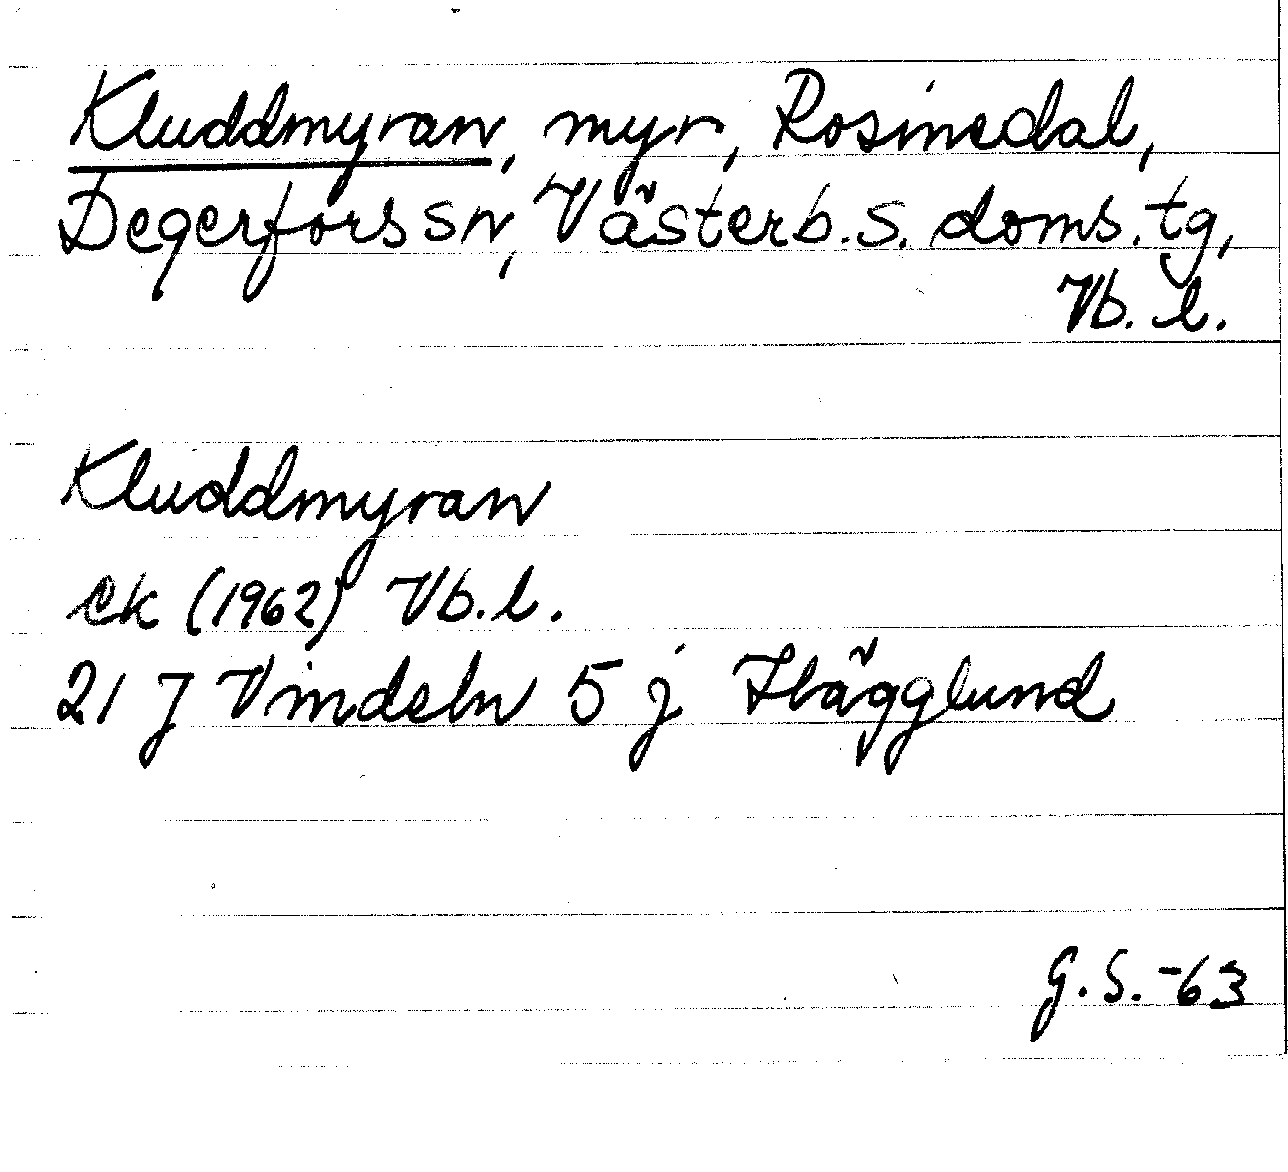 Kluddmyran, myr, Rosinedal,
Degerfors sn, Västerb. s. doms. tg,
Vb. l.
Kluddmyran
ek (1962) Vb. l.
21 J Vindeln 5 j Hägglund
G. S. -63